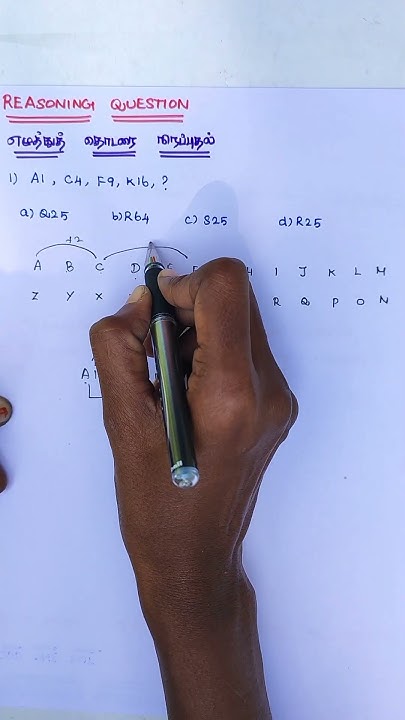 REASONING QUESTION
எழுத்துத் தொடரை நிரப்புதல்
1) A1, C4, F9, K16, ?
a) Q25 b) R64 c) S25 d) R25
+2
A B C D I J K L M
Z Y X R Q P O N
A1